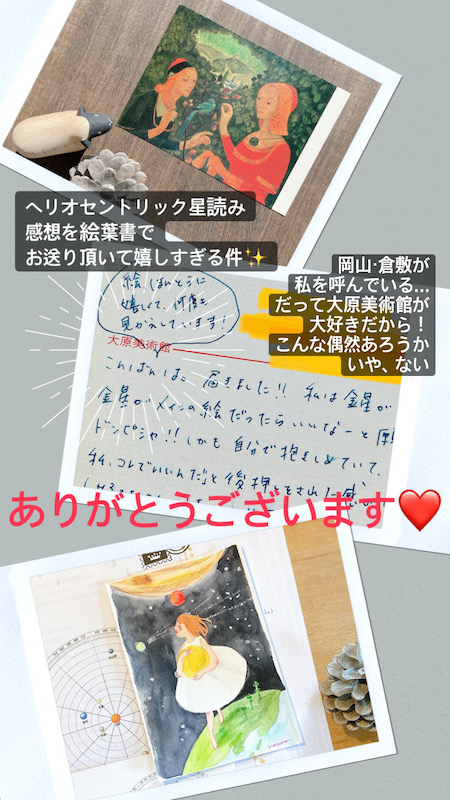 ヘリオセントリック星読み
感想を絵葉書で
お送り頂いて嬉しすぎる件✨
岡山･倉敷が
私を呼んでいる...
だって大原美術館が
大好きだから！
こんな偶然あろうか
いや、ない
絵、ほんとうに
嬉しくて、何度も
見かえしています！
大原美術館
こんばんは。届きました!! 私は金星が
金星がメインの絵だったらいいなーと
ドンピシャ!! しかも自分で抱きしめていて、
私、コレでいいんだ」と後押しをされた感
ありがとうございます❤️